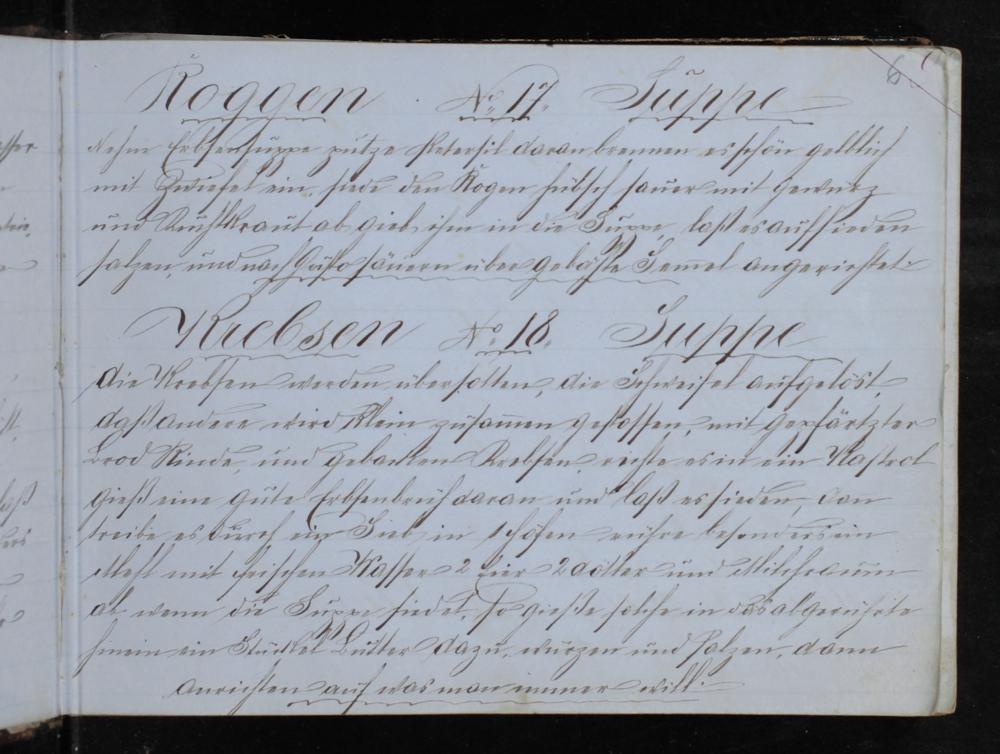 6
Roggen No 17. Suppe
Nehm Erbsensuppe putze Petersil daran brennen es schön gelblich
mit Zwiefel ein, siede den Rogen hübsch sauer mit Gewürz
und Kraut ab gieb ihm in die Suppe, laß es aufsieden
salzen, und nach säuern über gebähte Semel angerichtet.
Krebsen No 18. Suppe
Die Krebsen werden übersotten, die Schweifel aufgelöst,
daß andere wird klein zusammen gestossen, mit
Brod Rinde, und gebacken Krebsen, richte es in ein Kastrol
gieß eine gute Erbsenbrüh daran und laß es sieden, dan
treibe es durch ein Sieb, in rühre besonders ein
Mehl mit frischen Wasser 2 Eier 2 Dötter und Milchraum
ab wenn die Suppe siedet, so gieße solche in das abgerührte
hinein ein Stückel Butter dazu, würzen und salzen, dann
anrichten auf was man immer will.